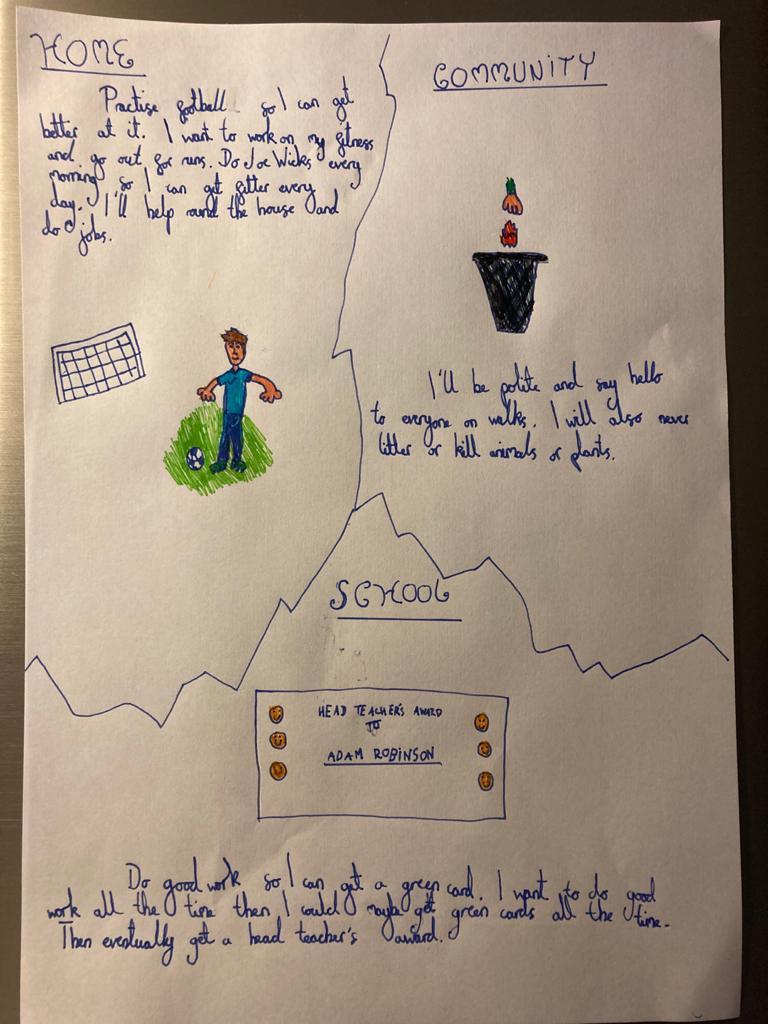 HOME
Practise football so I can get
better at it. I want to work on my fitness
and go out for runs. Do Joe Wicks every
morning so I can get fitter every
day. I'll help round the house and
do jobs.
COMMUNITY
I'll be polite and say hello
to everyone on walks. I will also never
litter or kill animals or plants.
SCHOOL
HEAD TEACHER'S AWARD
TO
ADAM ROBINSON
Do good work so I can get a green card. I want to do good
work all the time then I could maybe get green cards all the time.
Then eventually get a head teacher's award.